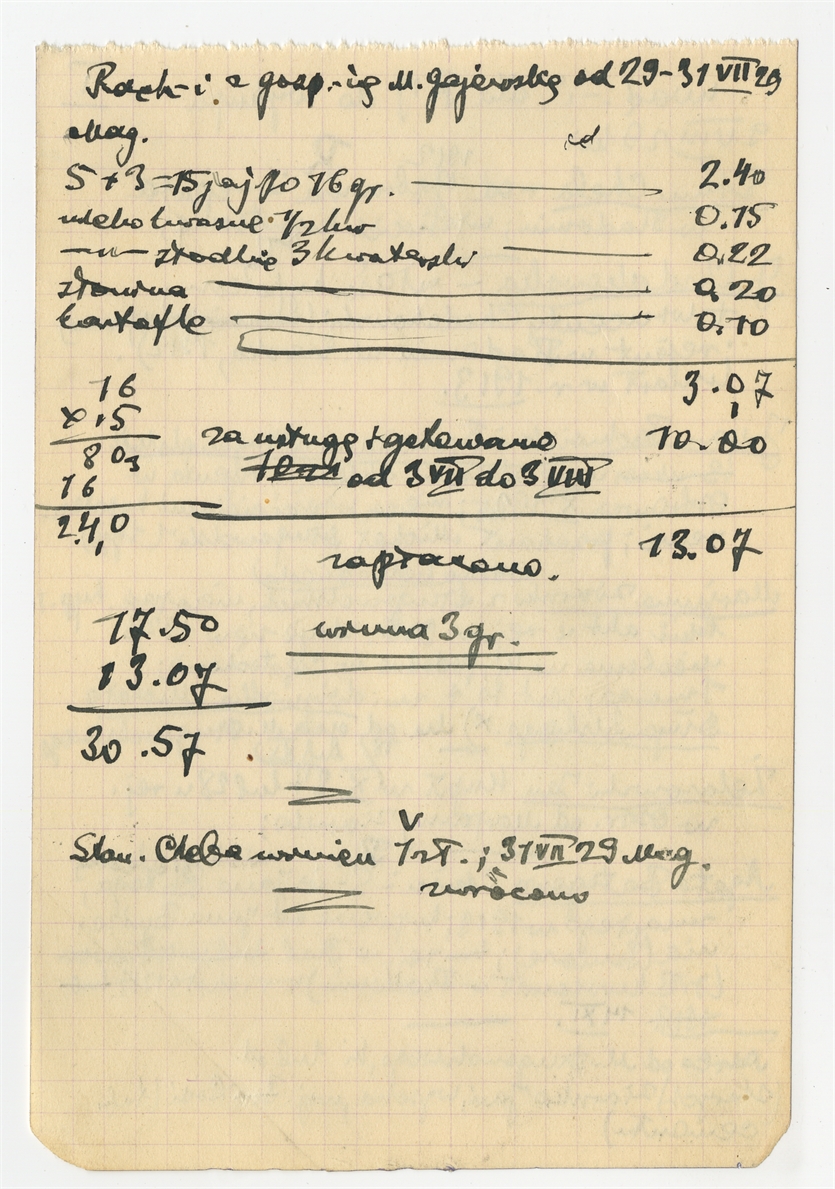 Rach-i z gosp-ią M. Gajewską od 29-31 VII 29
Mag.
5 + 3 = 15 jaj po 16 gr. — 2.40
mleko kwaśne 1/2 kw 0.15
—"— słodkie 3 kwaterki — 0.22
słonina — 0.20
kartofle — 0.10
3.07
16
x 15
80
16
2.40
za usługę i gotowanie 10.00
od 3 VII do 3 VIII
13.07
zapłacono.
17.50
13.07
30.57
winna 3 gr.
Stan. Chleba winien 1 zł. ; 31 VII 29 Mag.
zwrócono